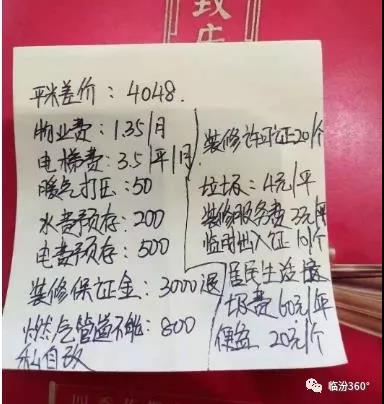 致店
平米差价：4048.
物业费：1.35/月
电梯费：3.5/平/月
暖气打压：50
水费预存：200
电费预存：500
装修保证金：3000退
燃气管道不能：800
私自改
装修许可证20/个
垃圾：4元/平
装修服务费 2元/平
临时出入证 10/个
居民生活垃
圾费 60元/年
20元/个
临汾360°